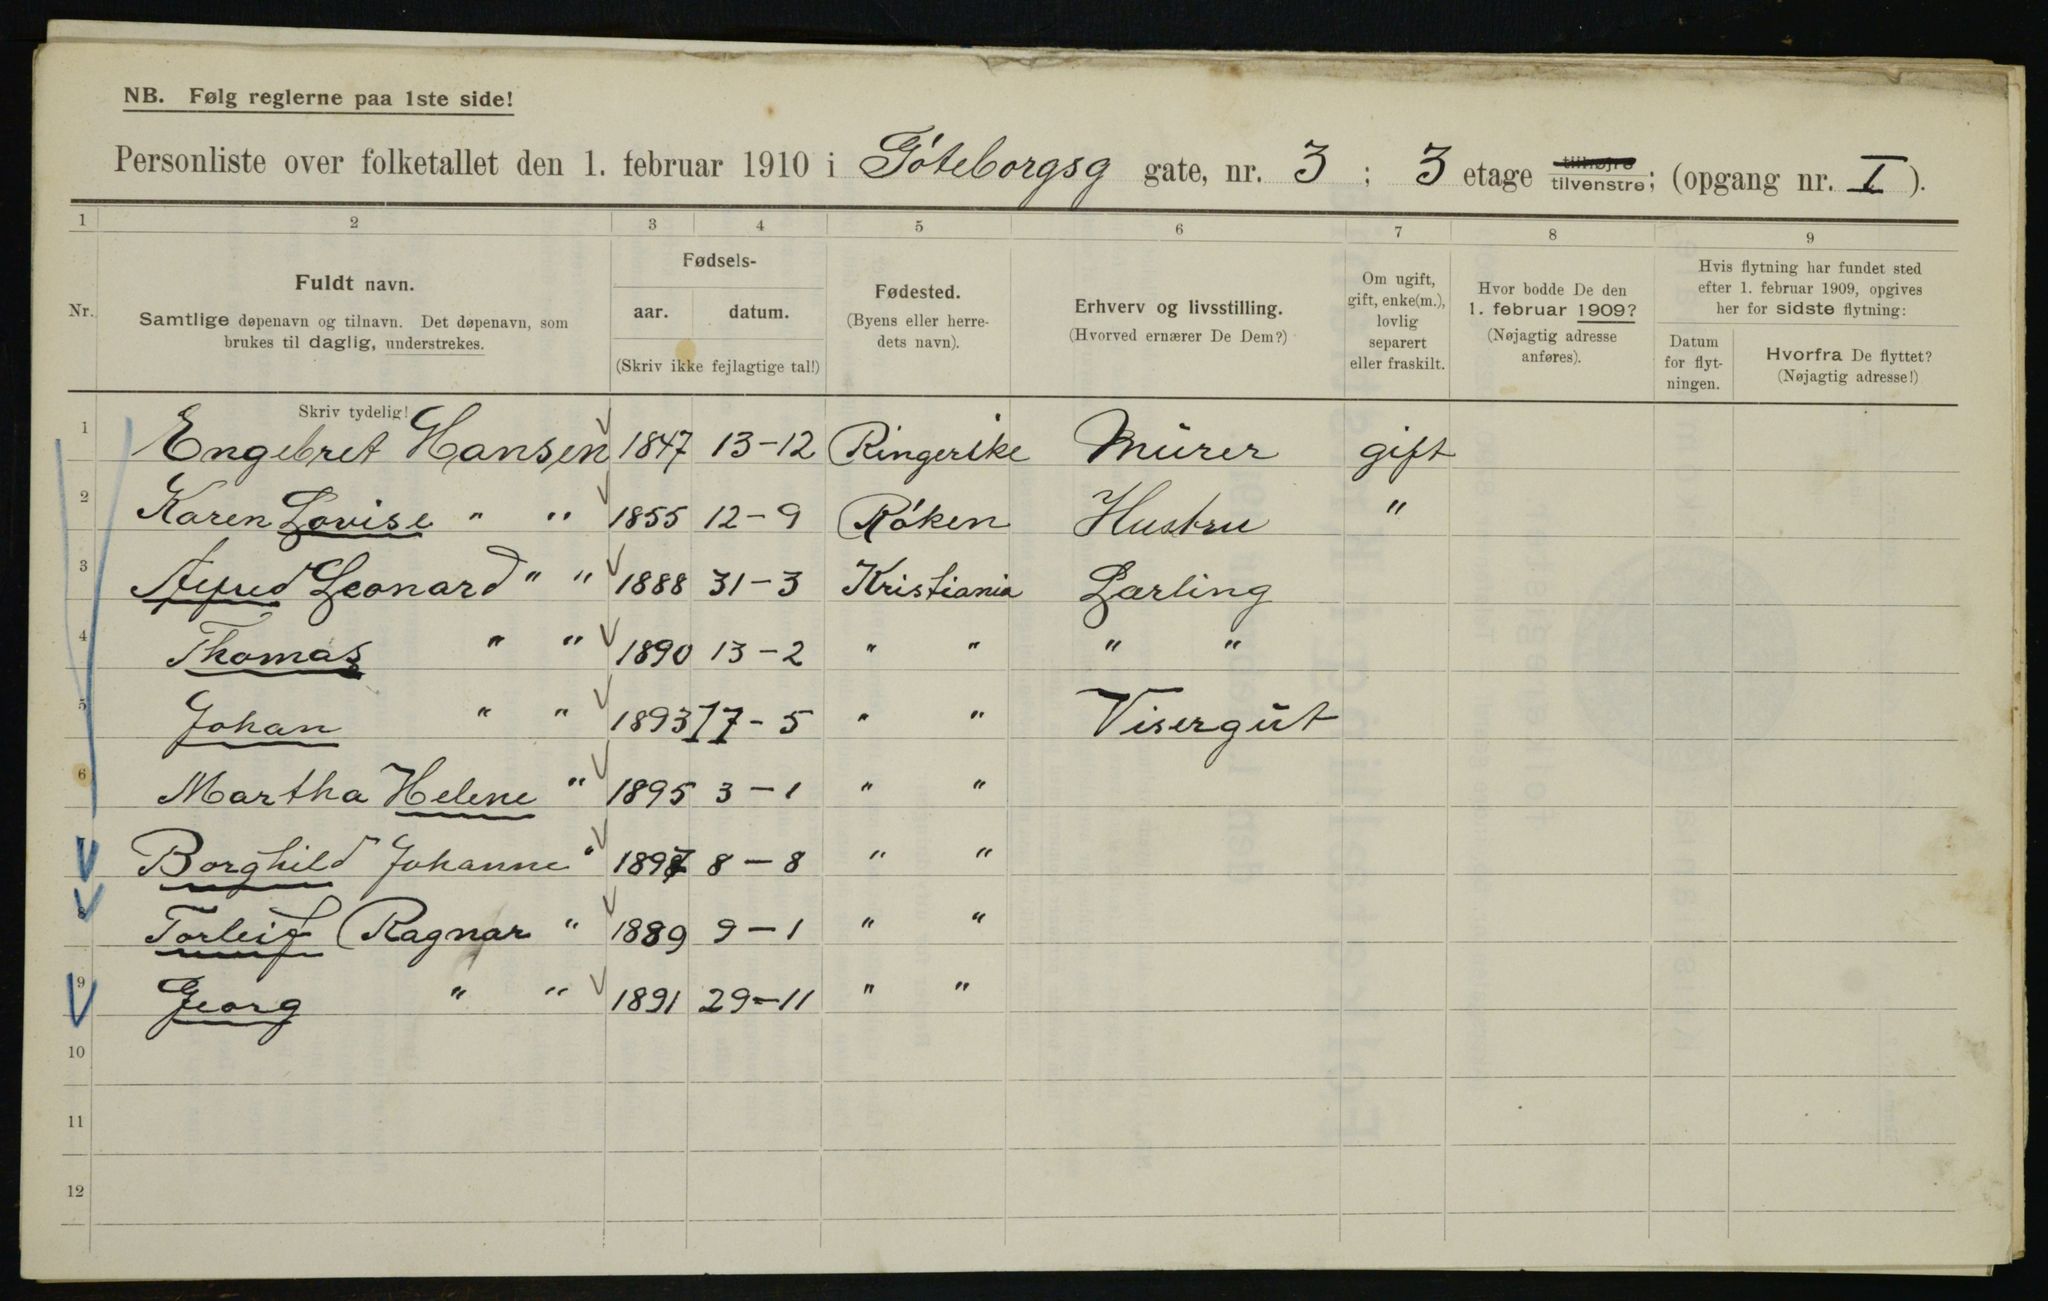 NB. Følg reglerne paa 1ste side!
Personliste over folketallet den 1. februar 1910 i Göteborgsg gate, nr. 3 ; 3 etage tilhøjre tilvenstre; (opgang nr. I ).
1 2 3 4 5 6 7 8 9
Nr.
Fuldt navn.
Samtlige døpenavn og tilnavn. Det døpenavn, som
brukes til daglig, understrekes.
Fødsels-
aar. datum.
(Skriv ikke fejlagtige tal!)
Fødested.
(Byens eller herre-
dets navn).
Erhverv og livsstilling.
(Hvorved ernærer De Dem?)
Om ugift,
gift, enke(m.),
lovlig
separert
eller fraskilt.
Hvor bodde De den
1. februar 1909?
(Nøjagtig adresse
anføres).
Hvis flytning har fundet sted
efter 1. februar 1909, opgives
her for sidste flytning:
Datum
for flyt-
ningen.
Hvorfra De flyttet?
(Nøjagtig adresse!)
Skriv tydelig!
1 Engebret Hansen 1847 13-12 Ringerike Murer gift
2 Karen Lovise " " 1855 12-9 Røken Hustru "
3 Alfred Leonard " " 1888 31-3 Kristiania Lærling
4 Thomas " " 1890 13-2 " " " "
5 Johan " " 1893 17-5 " " Visergut
6 Martha Helene " 1895 3-1 " "
Borghild Johanne " 1897 8-8 " "
8 Torleif Ragnar " 1889 9-1 " "
9 Georg " " 1891 29-11 " "
10
11
12